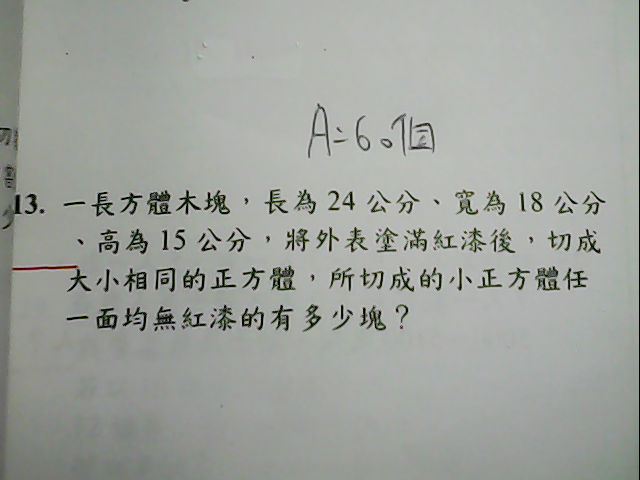 A=60個
13. 一長方體木塊，長為 24 公分、寬為 18 公分
、高為 15 公分，將外表塗滿紅漆後，切成
大小相同的正方體，所切成的小正方體任
一面均無紅漆的有多少塊？